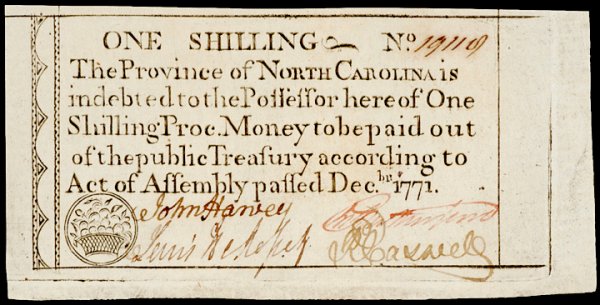 ONE SHILLING No. 19118
The Province of NORTH CAROLINA is
indebted to the Poſſeſſor here of One
Shilling Proc. Money to be paid out
of the public Treaſury according to
Act of Aſſembly paſſed Dec.br 1771.
John Harvey
Lewis DeRoſset
R Caswell